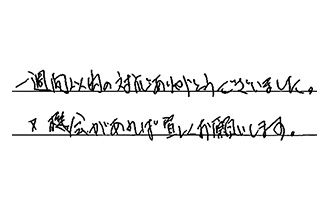 一週間以内の対応ありがとうございました。
又機会があれば宜しくお願いします。